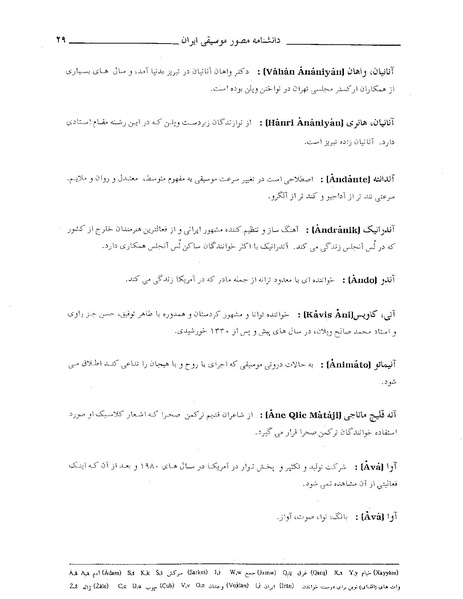 دانشنامه مصور موسیقی ایران ۲۹
آنانیان، واهان [Vâhân Ânâniyân] : دکتر واهان آنانیان در تبریز بدنیا آمد، و سال های بسیاری
از همکاران ارکستر مجلسی تهران در نواختن ویلن بوده است.
آنانیان، هانری [Hânri Ânâniyân] : از نوازندگان زبردست ویلن که در این رشته مقام استادی
دارد. آنانیان زاده تبریز است.
آندانته [Ândânte] : اصطلاحی است در تغییر سرعت موسیقی به مفهوم متوسط، معتدل و روان و ملایم.
سرعتی تند تر از آداجیو و کند تر از آلگرو.
آندرانیک [Ândrânik] : آهنگ ساز و تنظیم کننده مشهور ایرانی و از فعالترین هنرمندان خارج از کشور
که در لُس آنجلس زندگی می کند. آندرانیک با اکثر خوانندگان ساکن لُس آنجلس همکاری دارد.
آندو [Ândo] : خواننده ای با معدود ترانه از جمله مادر که در آمریکا زندگی می کند.
آنی، کاویس [Kâvis Âni] : خواننده توانا و مشهور کردستان و همدوره با طاهر توفیق، حسن جز راوی
و استاد محمد صالح ویلان، در سال های پیش و پس از ۱۳۳۰ خورشیدی.
آنیماتو [Ânimâto] : به حالات درونی موسیقی که اجرای با روح و با هیجان را تداعی کند اطلاق می
شود.
آنه قلیچ ماتاجی [Âne Qlic Mâtâji] : از شاعران قدیم ترکمن صحرا که اشعار کلاسیک او مورد
استفاده خوانندگان ترکمن صحرا قرار می گیرد.
آوا [Âvâ] : شرکت تولید و تکثیر و پخش نوار در آمریکا در سال های ۱۹۸۰ و بعد از آن که اینک
فعالیتی از آن مشاهده نمی شود.
آوا [Âvâ] : بانگ، نوا، صوت، آواز.